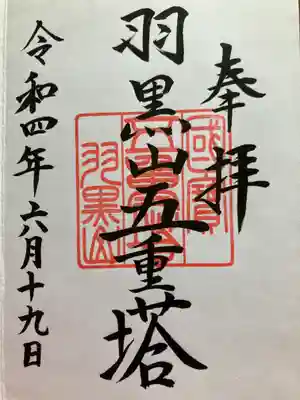 奉拝
國寶
五重塔
羽黒山
羽黒山五重塔
令和四年六月十九日